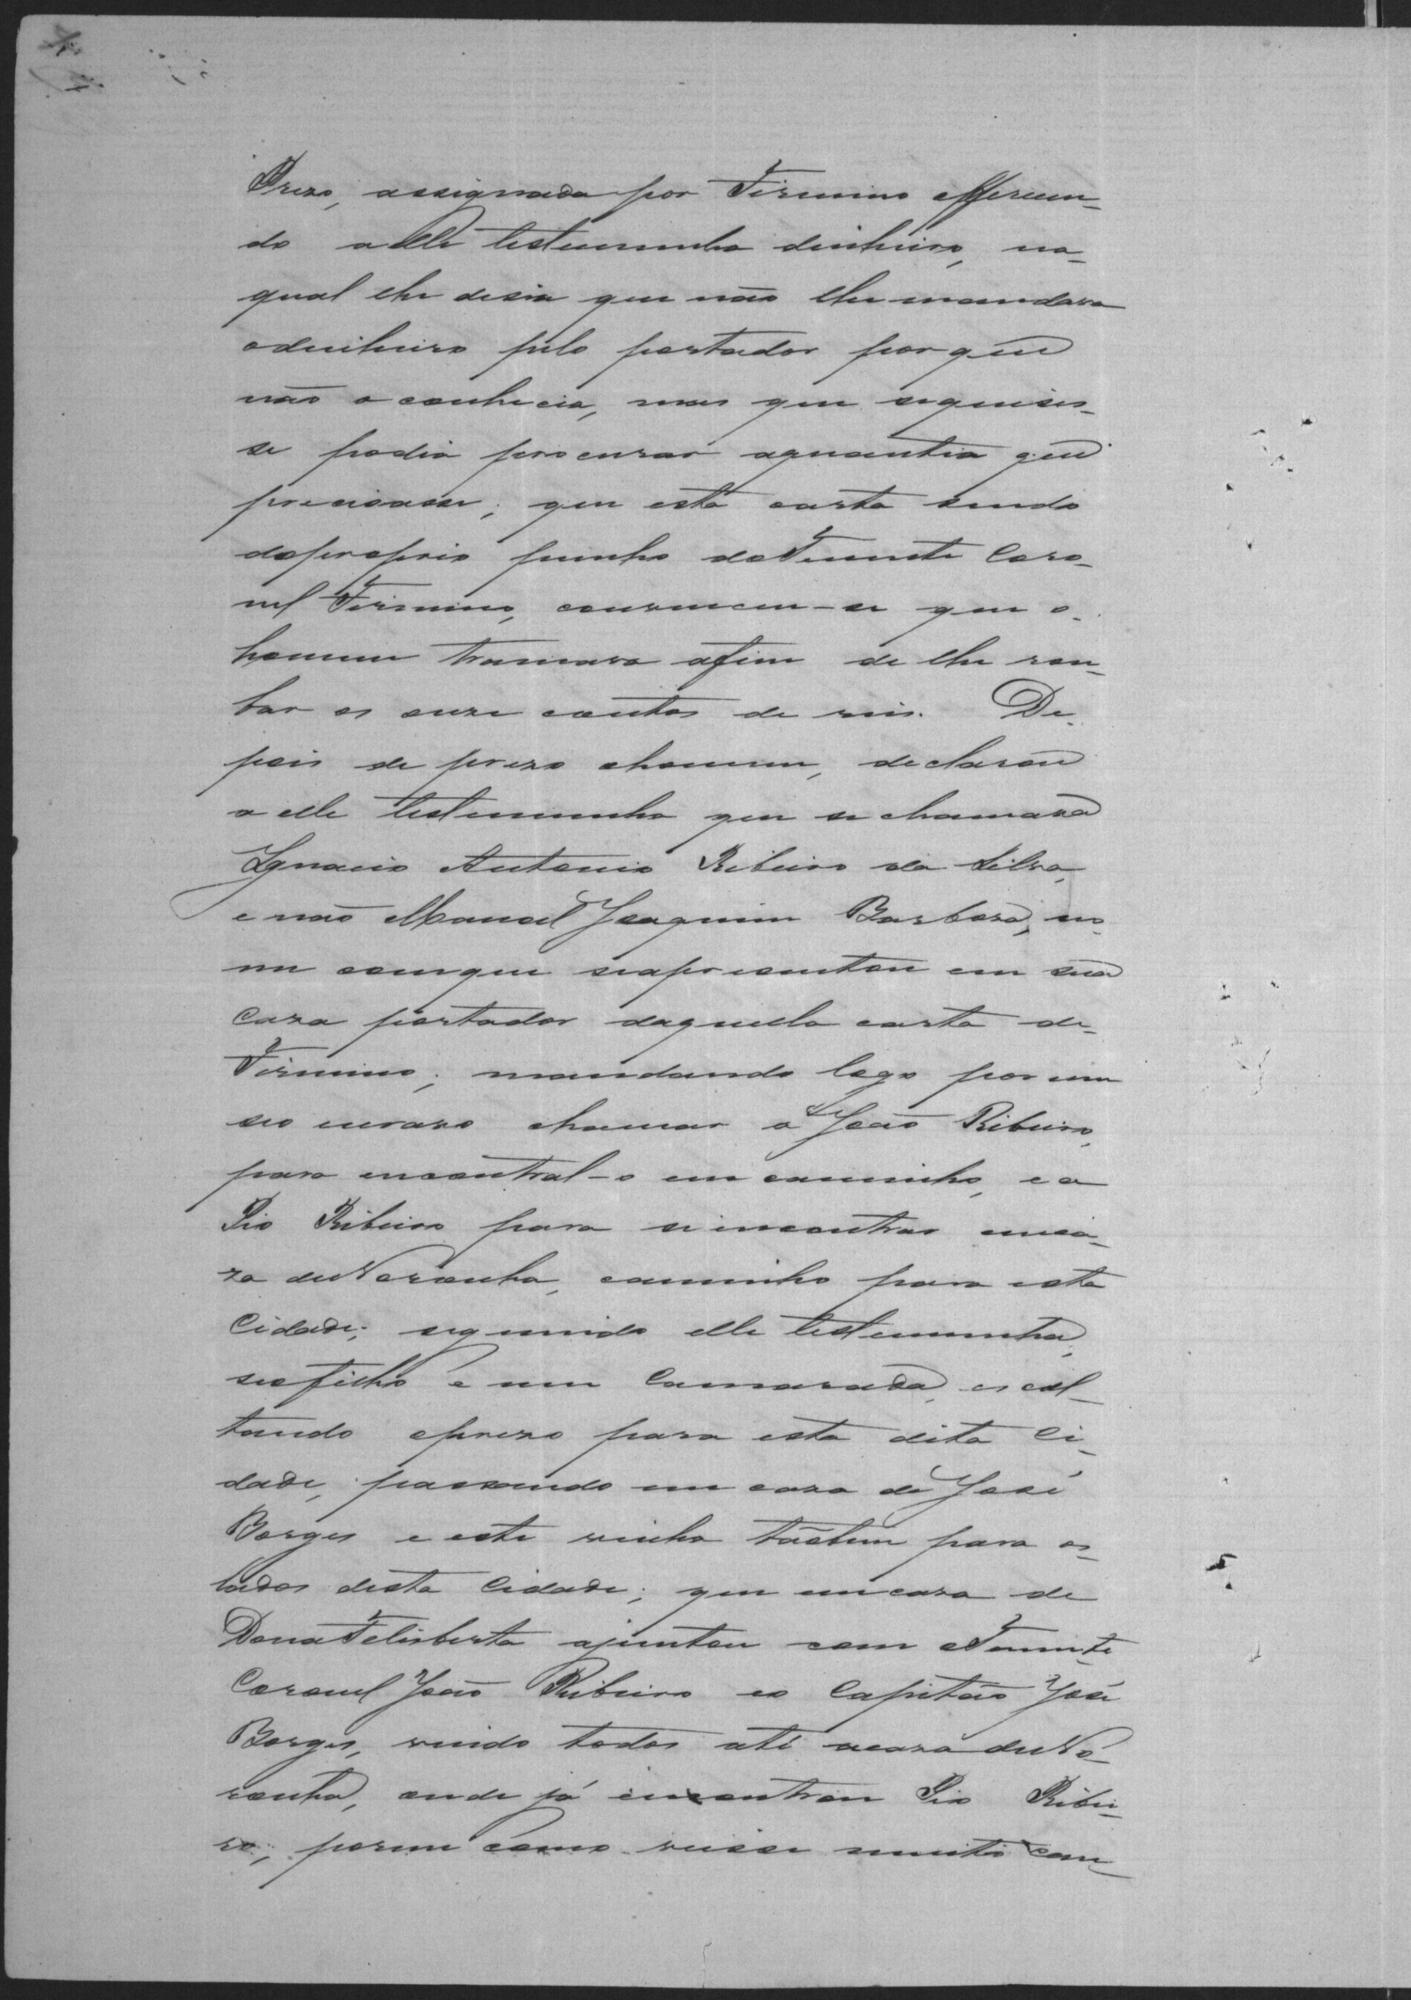 Prezo, assignada por Firmino offerecen-
do a elle testemunha dinheiro, na
qual lhe desia que não lhe mandava
o dinheiro pelo portador porque
não o conhecia, mas que se quises-
se podia procurar a quantia que
precisasse; que esta carta sendo
do proprio punho do Tenente Coro-
nel Firmino, convenceu-se que o
homem tramava afim de lhe rou-
bar os onze contos de reis. De-
pois de prezo o homem, declarou
a elle testemunha que se chamava
Ignacio Antonio Ribeiro da Silva,
e não Manoel Joaquim Barboza, no-
me com que se apresentou em sua
caza portador daquella carta de
Firmino; mandando logo por um
seo escravo chamar a João Ribeiro,
para encontral-o em caminho, e a
Pio Ribeiro para se incontrar em ca-
za de Noronha, caminho para esta
Cidade; seguindo elle testemunha,
seo filho e um Camarada, escol-
tando o prezo para esta dita Ci-
dade, passando em caza de José
Borges e este vinha tãobem para os
lados desta Cidade; que em caza de
Dona Felisberta ajuntou com o Tenente
Coronel João Ribeiro e o Capitão José
Borges, vindo todos até a caza de No-
ronha, onde já encontrou Pio Ribei-
ro; porem como viesse muito can-